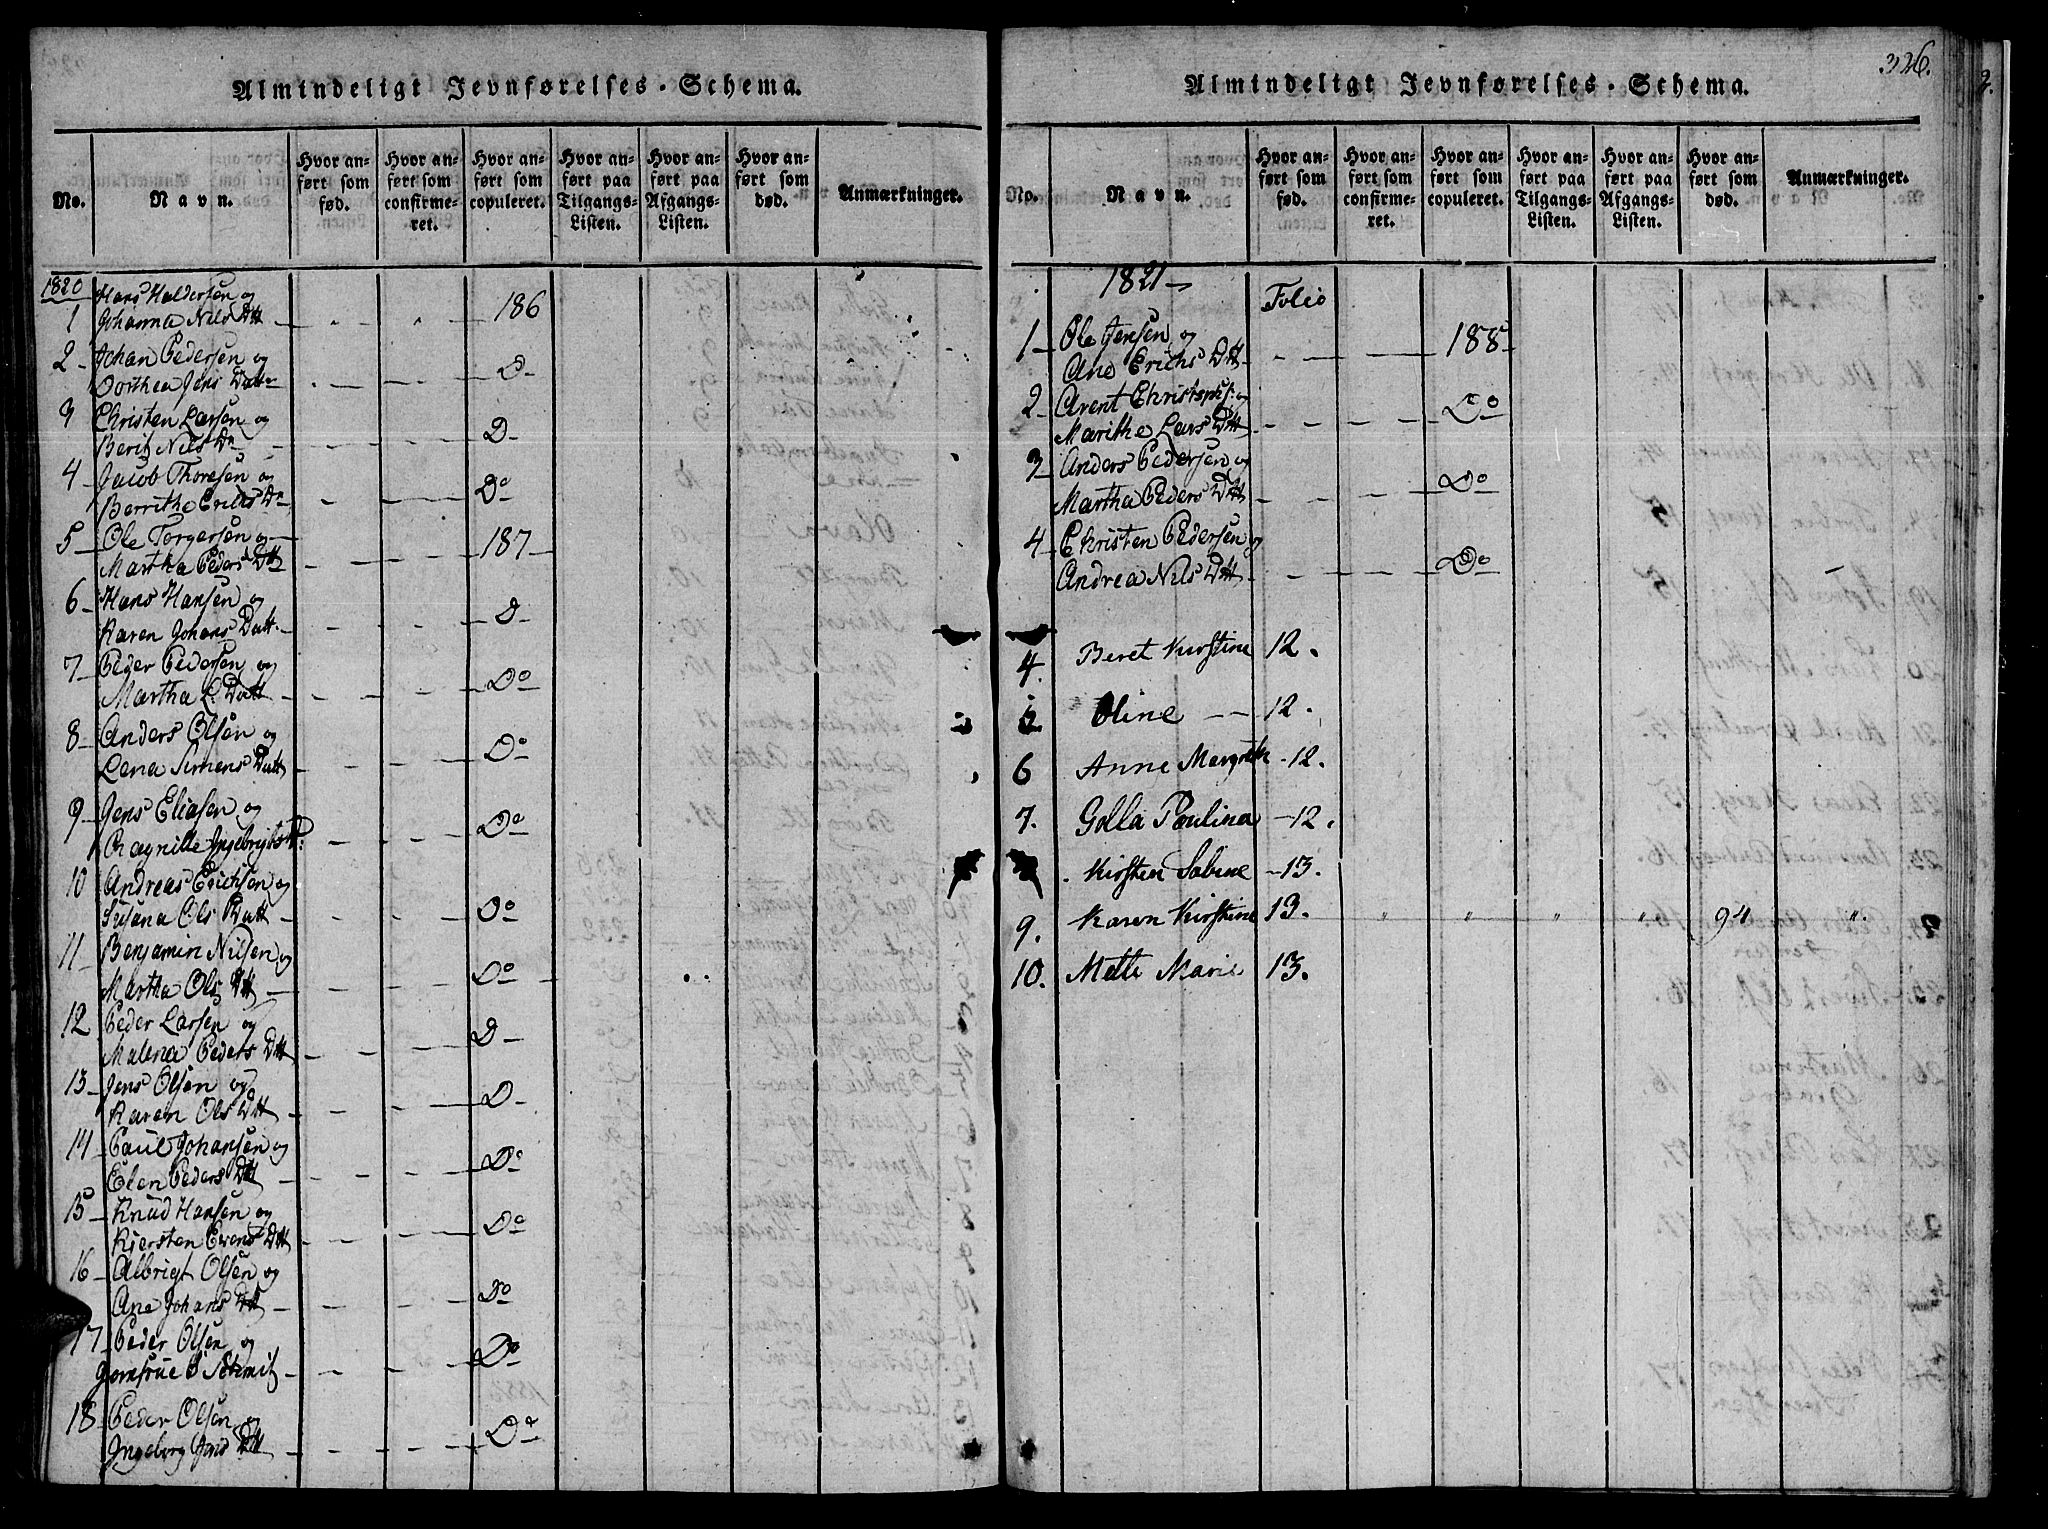 Almindeligt Jevnførelses-Schema.
No. Navn. Hvor anført som fød. Hvor anført som confirmeret. Hvor anført som copuleret. Hvor anført paa Tilgangs-Listen. Hvor anført paa Afgangs-Listen. Hvor anført som død. Anmærkninger.
1820 Hans Haldersen og
1 Johanna Nils Dtt 186
2 Johan Pedersen og
Dorthea Jens Datt D
3 Christen Larsen og
Berit Nils Dr D
4 Jacob Thoresen og
Berrithe Erichs Dr Do
5 Ole Torgersen og
Martha Peders Dtt 187
6 Hans Hansen og
Karen Johans Datt. D
7 Peder Pedersen og
Martha L Datt Do
8 Anders Olsen og
Lena Simens Datt Do
9 Jens Eliasen og
Ragnille Ingebrigts D Do
10 Andreas Erichsen og
Susana Ols Datt Do
11 Benjamin Nilsen og
Martha Ols Dtt Do
12 Peder Larsen og
Malena Peders Dtt D
13 Jens Olsen og
Karen Ols Dtt D
14 Paul Johansen og
Elen Peders Dtt Do
15 Knud Hansen og
Kiersten Evens Dtt Do
16 Albrigt Olsen og
Ane Johans Dtt Do
17 Peder Olsen og
Jomfrue Schmit Do
18 Peder Olsen og
Ingeborg Jens Dtt Do
326.
Almindeligt Jevnførelses-Schema.
No. Navn. Hvor anført som fød. Hvor anført som confirmeret. Hvor anført som copuleret. Hvor anført paa Tilgangs-Listen. Hvor anført paa Afgangs-Listen. Hvor anført som død. Anmærkninger.
1821 Folio
1 Ole Jensen og
Ane Erichs Dtt 188
2 Arent Christophs: og
Marithe Lars Dtt Do
3 Anders Pedersen og
Martha Peders Dtt Do
4 Christen Pedersen og
Andrea Nils Dtt Do
4. Beret Kirstine 12.
Oline 12.
6 Anne Margreth 12.
7. Golla Poulina 12.
Kirsten Sabine 13.
9. Karen Kirstine 13. " " " " 94 "
10. Mette Marie 13.